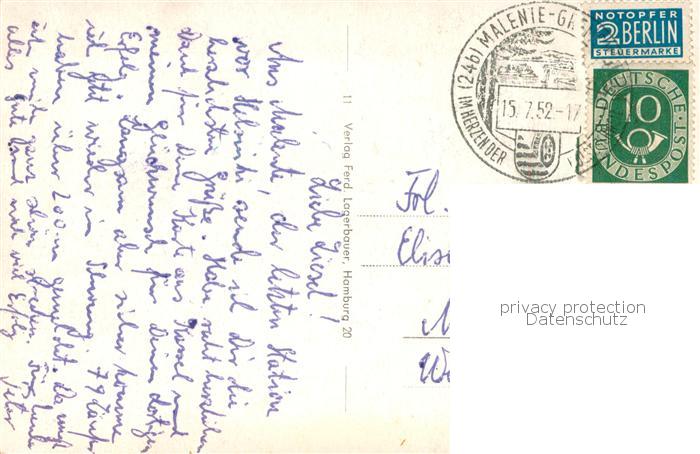 Liebe Liesel!
Aus Malente, der letzten Station
vor Helsinki sende ich Dir die
herzlichsten Grüße. Habe recht herzlichen
Dank für Deine Karte aus Kassel und
meinen Glückwunsch für Deinen dortigen
Erfolg. Langsam aber sicher komme
ich jetzt wieder in Schwung. 79 Läufer
haben über 200 m gemeldet. Da muß
ich mich ganz schön strecken. Für heute
alles Gute und viel Erfolg
Peter
11 Verlag Ferd. Lagerbauer, Hamburg 20
(24b) MALENTE-GR
15.7.52.-17
IM HERZEN DER
NOTOPFER
2 BERLIN
STEUERMARKE
DEUTSCHE
10
BUNDESPOST
Frl.
Elis
privacy protection
Datenschutz